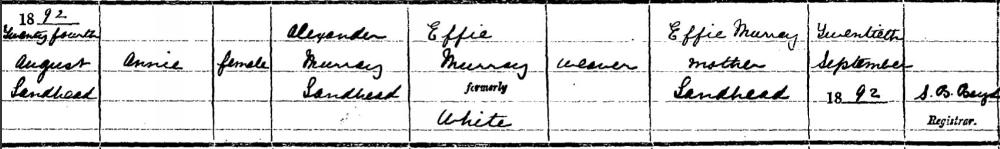 1892
Twenty fourth
August
Sandhead
Annie
female
Alexander
Murray
Sandhead
Effie
Murray
formerly
White
weaver
Effie Murray
mother
Sandhead
Twentieth
September
1892
S. B. Boyd
Registrar.